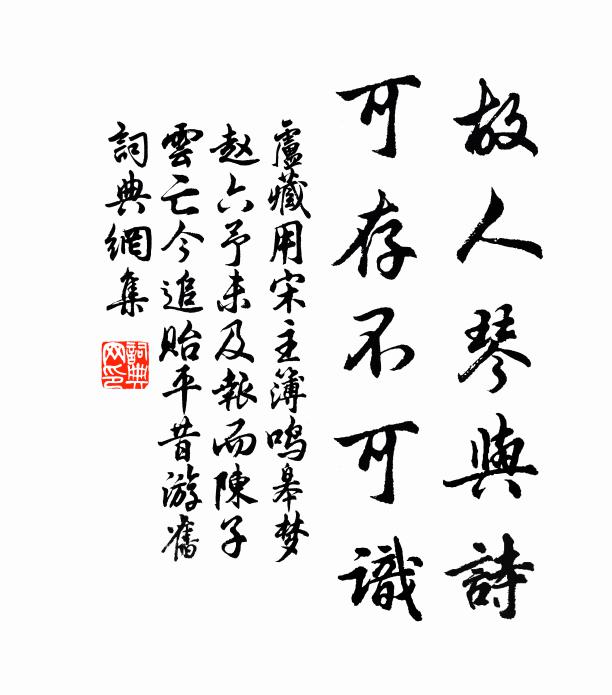 故人琴與詩
可存不可識
盧藏用宋主簿鳴皋梦
赵六予未及報而陳子
雲亡今追貽平昔游舊
詞典網集
詞典
网印